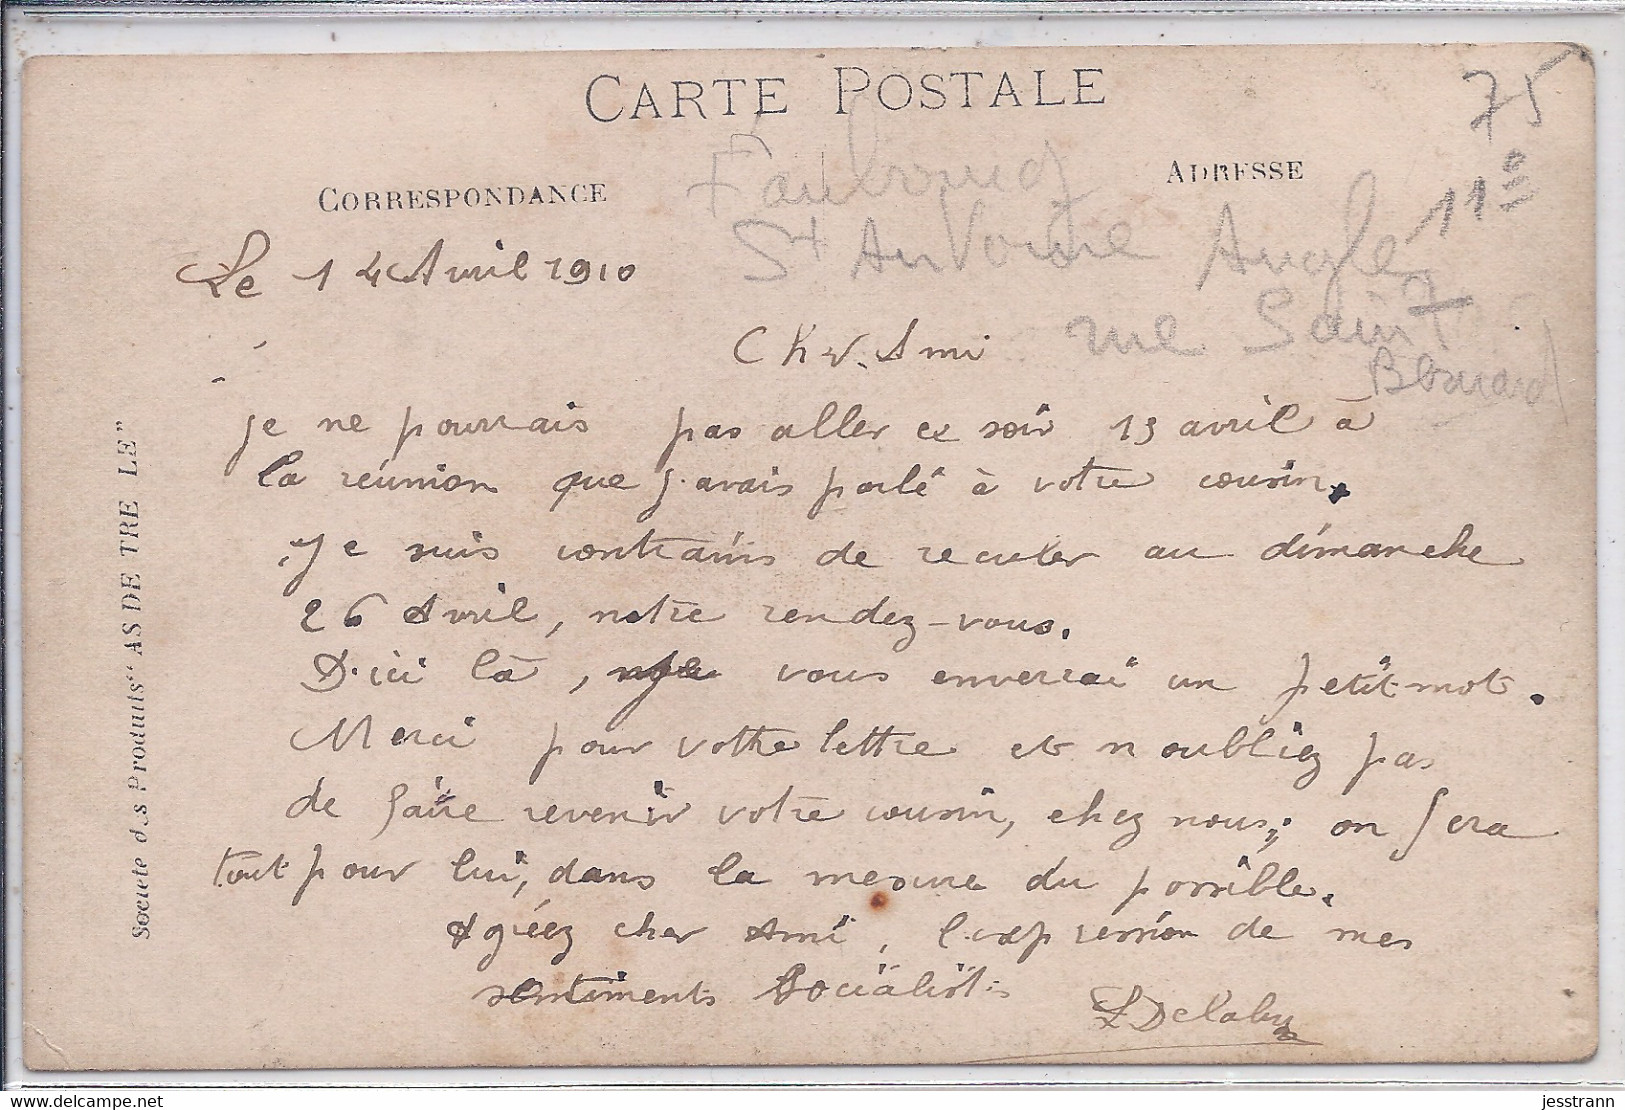 CARTE POSTALE
75
11e
CORRESPONDANCE
ADRESSE
Faubourg
St Antoine Angle
rue Saint
Bernard
Le 14 Avril 1910
Cher Ami
je ne pourrais pas aller ce soir 15 avril à
la réunion que j'avais parlé à votre cousin.
Je suis contrains de reculer au dimanche
26 Avril, notre rendez-vous.
D'ici là, je vous enverrai un petit mot.
Merci pour votre lettre et n'oubliez pas
de faire revenir votre cousin, chez nous; on fera
tout pour lui, dans la mesure du possible.
Agréez cher Ami, l'expression de mes
sentiments Socialist
L Delaby
Societe d s Produits "AS DE TRE LE"
delcampe.net
jesstrann